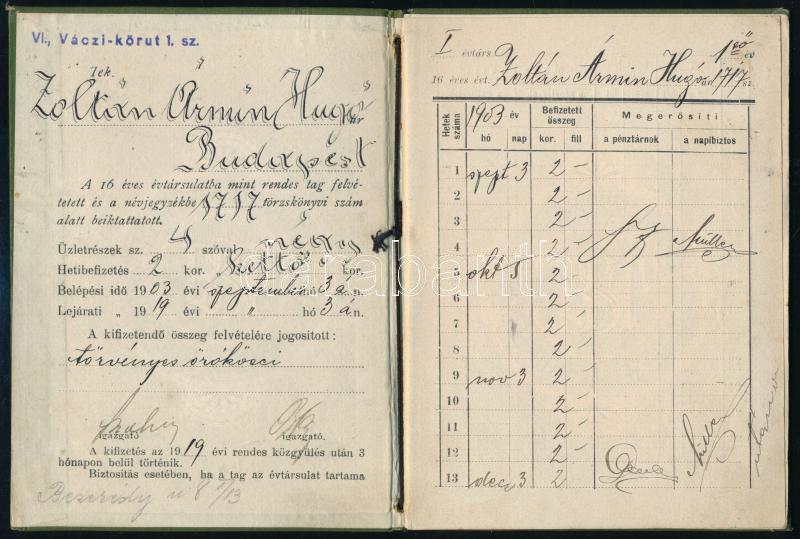 VI., Váczi-körut 1. sz.
Tek.
Zoltán Ármin Hugó úr
Budapest
A 16 éves évtársulatba mint rendes tag felvé-
tetett és a névjegyzékbe 1717 törzskönyvi szám
alatt beiktattatott.
Üzletrészek sz. 4 szóval négy
Hetibefizetés 2 kor. Kettő kor.
Belépési idő 1903 évi szeptember 3 án.
Lejárati „ 1919 évi " hó 3 án.
A kifizetendő összeg felvételére jogositott:
törvényes örökösei
igazgató igazgató.
A kifizetés az 1919 évi rendes közgyülés után 3
hónapon belül történik.
Biztositás esetében, ha a tag az évtársulat tartama
Bezerédy u 8 I/13
I évtárs. Zoltán Ármin Hugó 1ső év
16 éves évt. úr 1717 sz.
Hetek száma 1903 év Befizetett összeg Megerősíti
hó nap kor. fill a pénztárnok a napibiztos
1 szept 3 2 –
2 2 –
3 2 –
4 2 – Müller
5 okt 5 2 –
6 2 –
7 2 –
8 2 –
9 nov 3 2 –
10 2 –
11 2 – Müller
12 2 –
13 dec 3 2 –
darabanth